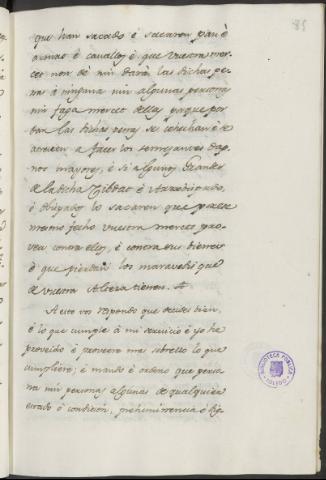 85
que han sacado è sacaron pan è
armas è cavallos è que vuestra mer-
ced non dé nin dará las dichas pe-
nas á ninguna nin algunas personas
nin faga merced dellas porque por
tan las dichas penas se è de
atreven a facer los semejantes dap-
nos mayores, è si algunos Grandes
de la dicha Cibdat è Arzobispado,
è Obispados lo sacaron que por el
mesmo fecho vuestra merced pro-
vea contra ellos, è contra sus bienes
è que pierdan los maravedis que
de vuestra Alteza tienen.
A esto vos respondo que decides bien,
è lo que cumple à mi servicio è yo he
proveido è proveere mas sobrello lo que
cumpliere; è mando è ordeno que perso-
na nin personas algunas de qualquier
estado ó condicion, preheminencia è dig-
BIBLIOTECA PUBLICA
TOLEDO